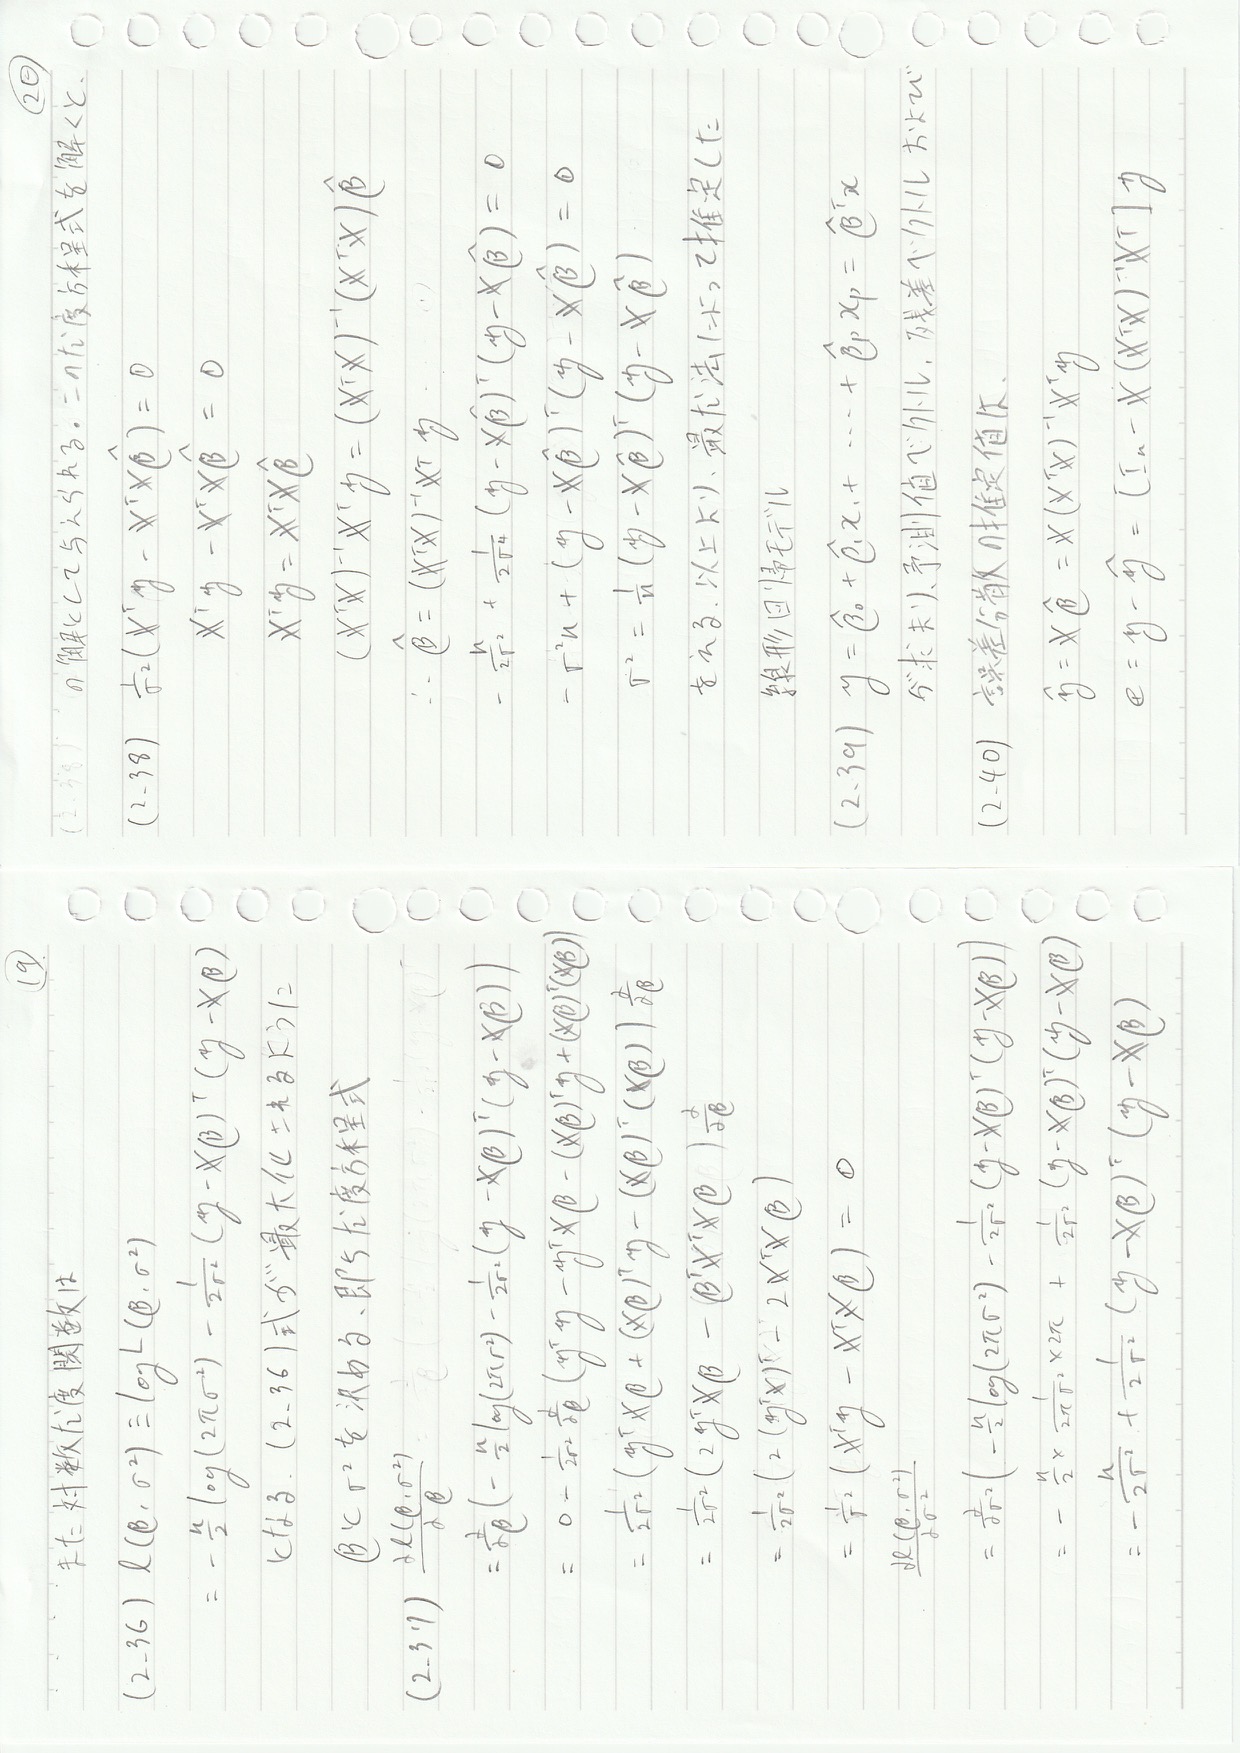 ⑲
また対数尤度関数は
(2-36) l(β, σ²) ≡ log L(β, σ²)
= -n/2 log(2πσ²) - 1/2σ² (y - Xβ)ᵀ(y - Xβ)
となる. (2-36)式が最大化されるように
βとσ²を決める、即ち尤度方程式
(2-37) ∂l(β, σ²)/∂β
= ∂/∂β(-n/2 log(2πσ²) - 1/2σ² (y - Xβ)ᵀ(y - Xβ))
= 0 - 1/2σ² ∂/∂β (yᵀy - yᵀXβ - (Xβ)ᵀy + (Xβ)ᵀ(Xβ))
= 1/2σ² (yᵀXβ + (Xβ)ᵀy - (Xβ)ᵀ(Xβ)) ∂/∂β
= 1/2σ² (2yᵀXβ - βᵀXᵀXβ) ∂/∂β
= 1/2σ² (2(yᵀX)ᵀ - 2XᵀXβ)
= 1/σ² (Xᵀy - XᵀXβ) = 0
∂l(β, σ²)/∂σ²
= ∂/∂σ² (-n/2 log(2πσ²) - 1/2σ² (y - Xβ)ᵀ(y - Xβ))
= - n/2 × 1/2πσ² × 2π + 1/2σ² (y - Xβ)ᵀ(y - Xβ)
= - n/2σ² + 1/2σ² (y - Xβ)ᵀ(y - Xβ)
⑳
の解として与えられる。この尤度方程式を解くと、
(2-38) 1/σ² (Xᵀy - XᵀXβ̂) = 0
Xᵀy - XᵀXβ̂ = 0
Xᵀy = XᵀXβ̂
(XᵀX)⁻¹Xᵀy = (XᵀX)⁻¹(XᵀX)β̂
∴ β̂ = (XᵀX)⁻¹Xᵀy
- n/2σ² + 1/2σ⁴ (y - Xβ̂)ᵀ(y - Xβ̂) = 0
- σ²n + (y - Xβ̂)ᵀ(y - Xβ̂) = 0
σ² = 1/n (y - Xβ̂)ᵀ(y - Xβ̂)
をえる. 以上より、最尤法によって推定した
線形回帰モデル
(2-39) y = β̂₀ + β̂₁x₁ + ⋯ + β̂ₚxₚ = β̂ᵀx
が求まり、予測値ベクトル, 残差ベクトルおよび
(2-40) 誤差分散の推定値は、
ŷ = Xβ̂ = X(XᵀX)⁻¹Xᵀy
e = y - ŷ = [Iₙ - X(XᵀX)⁻¹Xᵀ]y